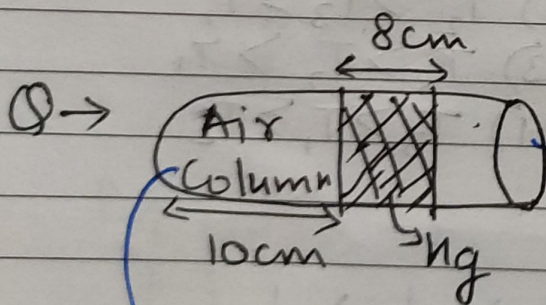 8cm
Q →
Air
Column
10cm
Hg